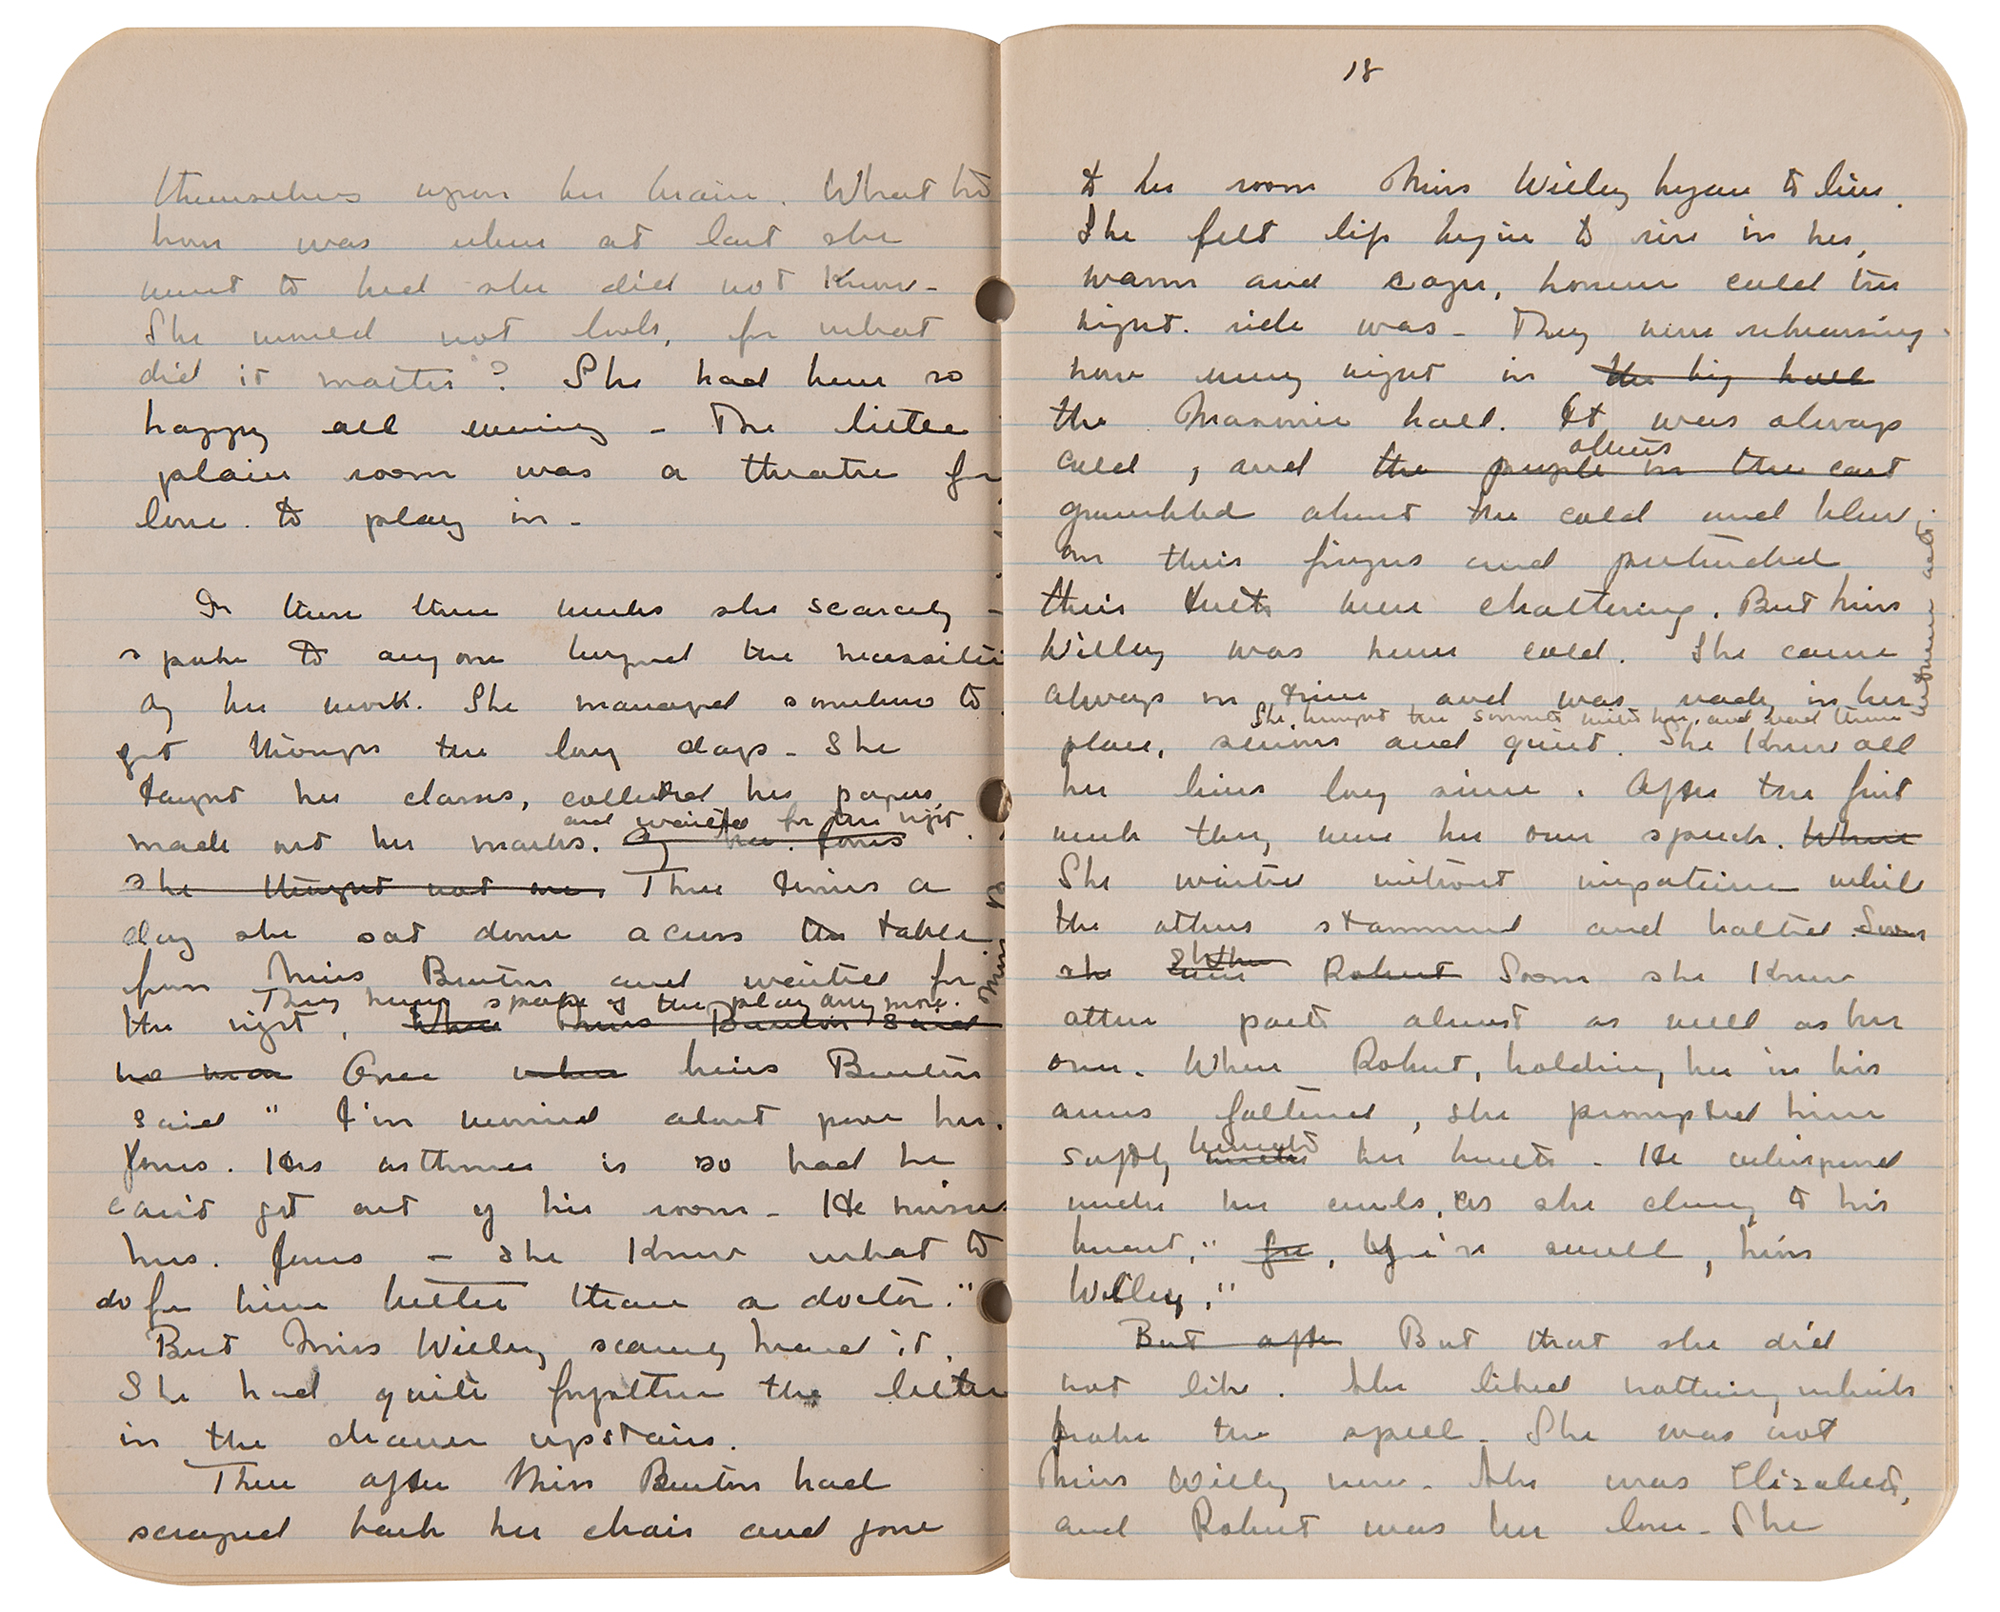 themselves upon her brain. What the
hour was when at last she
went to bed she did not know.
She would not look, for what
did it matter? She had been so
happy all evening. The little
plain room was a theatre for
love to play in.
In these three weeks she scarcely
spoke to anyone beyond the necessities
of her work. She managed somehow to
get through the long days. She
taught her classes, collected her papers,
and waited for the night.
made out her marks. Of Mrs. Jones
she thought not once. Three times a
day she sat down across the table
from Miss Benton and waited for
They never spoke of the play any more. Miss
the night. When Miss Benton said
no more Once when Miss Benton
said "I'm worried about poor Mr.
Jones. His asthma is so bad he
can't get out of his room. He misses
Mrs. Jones — she knew what to
do for him better than a doctor."
But Miss Willey scarcely heard it.
She had quite forgotten the letter
in the drawer upstairs.
Then after Miss Benton had
scraped back her chair and gone
18
to her room Miss Willey began to live.
She felt life begin to rise in her,
warm and eager, however cold the
night side was. They were rehearsing
now every night in the big hall
the Masonic hall. It was always
others
cold, and the people in the cast
grumbled about the cold and blew
on their fingers and pretended
their teeth were chattering. But Miss
Willey was never cold. She came
always on time and was ready in her
She brought the sonnets with her, and read them between acts.
place, serious and quiet. She knew all
her lines long since. After the first
week they were her own speech. When
She waited without impatience while
the others stammered and halted. Soon
she When Robert Soon she knew
other parts almost as well as her
own. When Robert, holding her in his
arms faltered, she prompted him
beneath
softly under her breath. He whispered
under her curls, as she clung to his
breast, "for, You're swell, Miss
Willey."
But after But that she did
not like. She liked nothing which
broke the spell. She was not
Miss Willey now. She was Elizabeth,
and Robert was her love. She